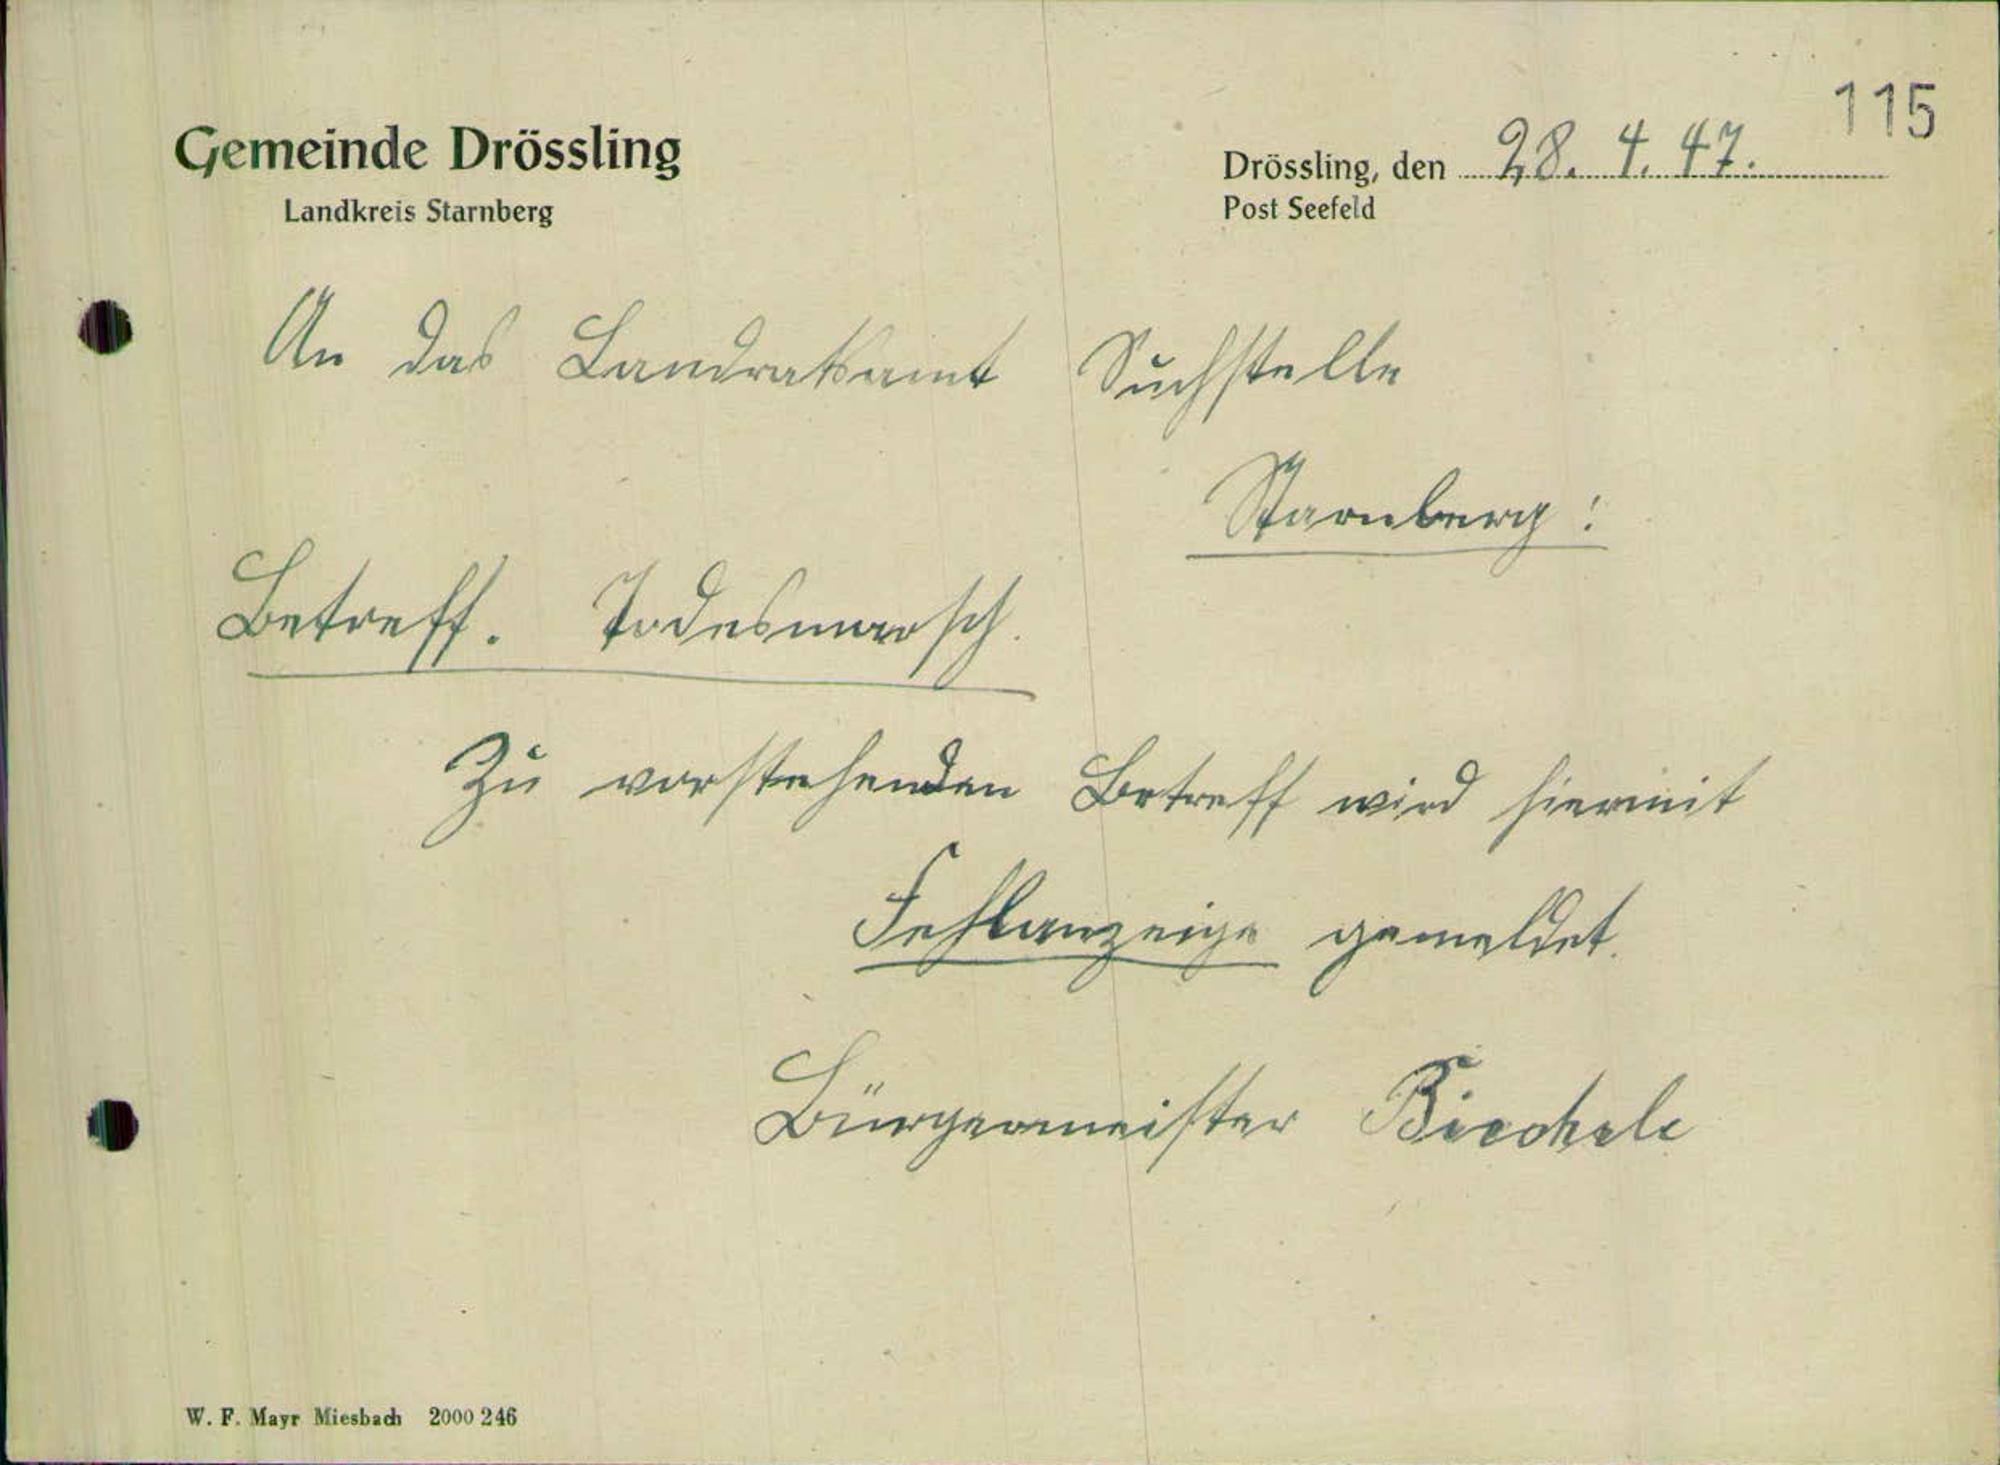 115
Gemeinde Drössling
Landkreis Starnberg
Drössling, den 28. 4. 47.
Post Seefeld
An das Landratsamt Suchstelle
Starnberg:
Betreff. Todesmarsch.
Zu vorstehenden Betreff wird hiermit
Fehlanzeige gemeldet.
Bürgermeister Biechele
W. F. Mayr Miesbach 2000 246